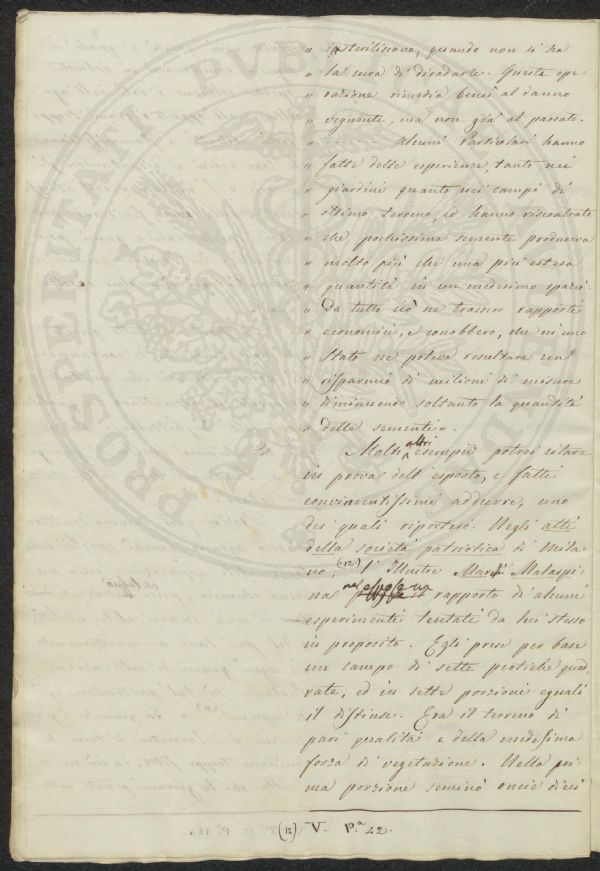 " steriliscano, quando non si ha
" la cura di diradarle. Questa ope-
" razione rimedia bensì al danno
" vegnente, ma non già al passato.
" ........ Alcuni Particolari hanno
" fatte delle esperienze, tanto nei
" giardini quanto nei campi di
" ottimo terreno, ed hanno riscontrato
" che pochissima semente produceva
" molto più che una più estesa
" quantità in un medesimo spazio.
" Da tutto ciò ne trassero rapporti
" economici, e conobbero, che in uno
" Stato ne poteva resultare un
" risparmio di milioni di misure
" diminuendo soltanto la quantità
" delle sementi ".
Molti altri esempii potrei citare
in prova dell'esposto, e fatti
convincentissimi addurre, uno
dei quali riporterò. Negli atti
della società patriotica di Mila-
no, (12) l'Illustre March. Malaspi-
na nel espose un rapporto di alcuni
esperimenti tentati da lui stesso
in proposito. Egli prese per base
un campo di sette pertiche quad-
rate, ed in sette porzioni eguali
il distinse. Era il terreno di
pari qualità e della medesima
forza di vegetazione. Nella pri-
ma porzione seminò oncie dieci
(12) V. P.a 42.
PROSPERITATI PUBLICAE